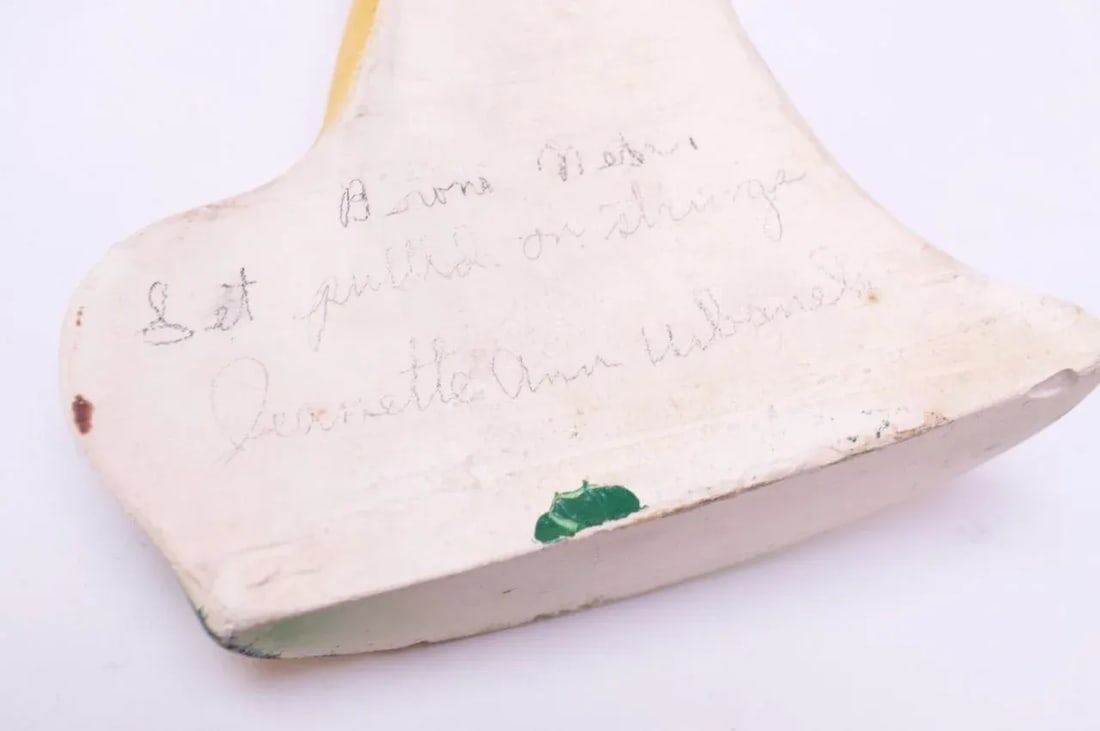 Nebr.
Let pulled on strings
Jeanette Ann Urbanek